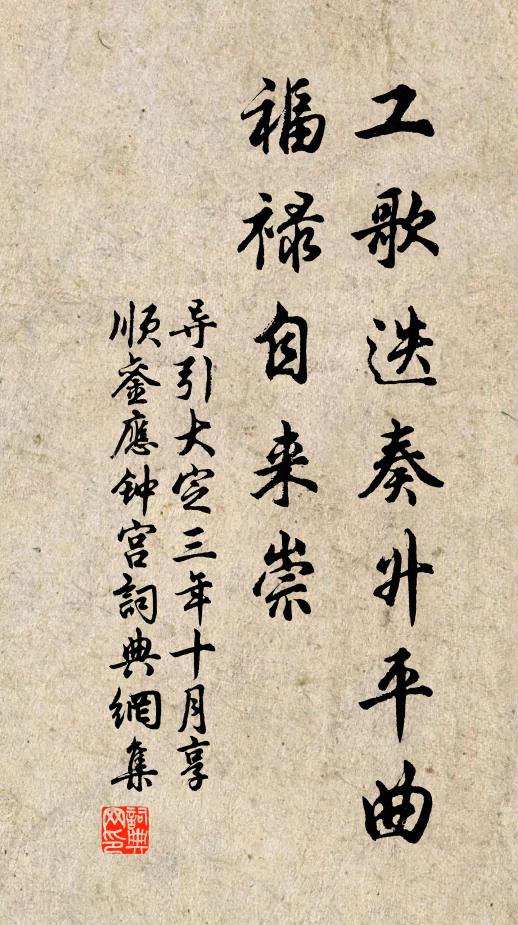 工歌迭奏升平曲
福禄自来崇
导引大定三年十月享
顺銮應钟宫詞典網集
詞典
网印